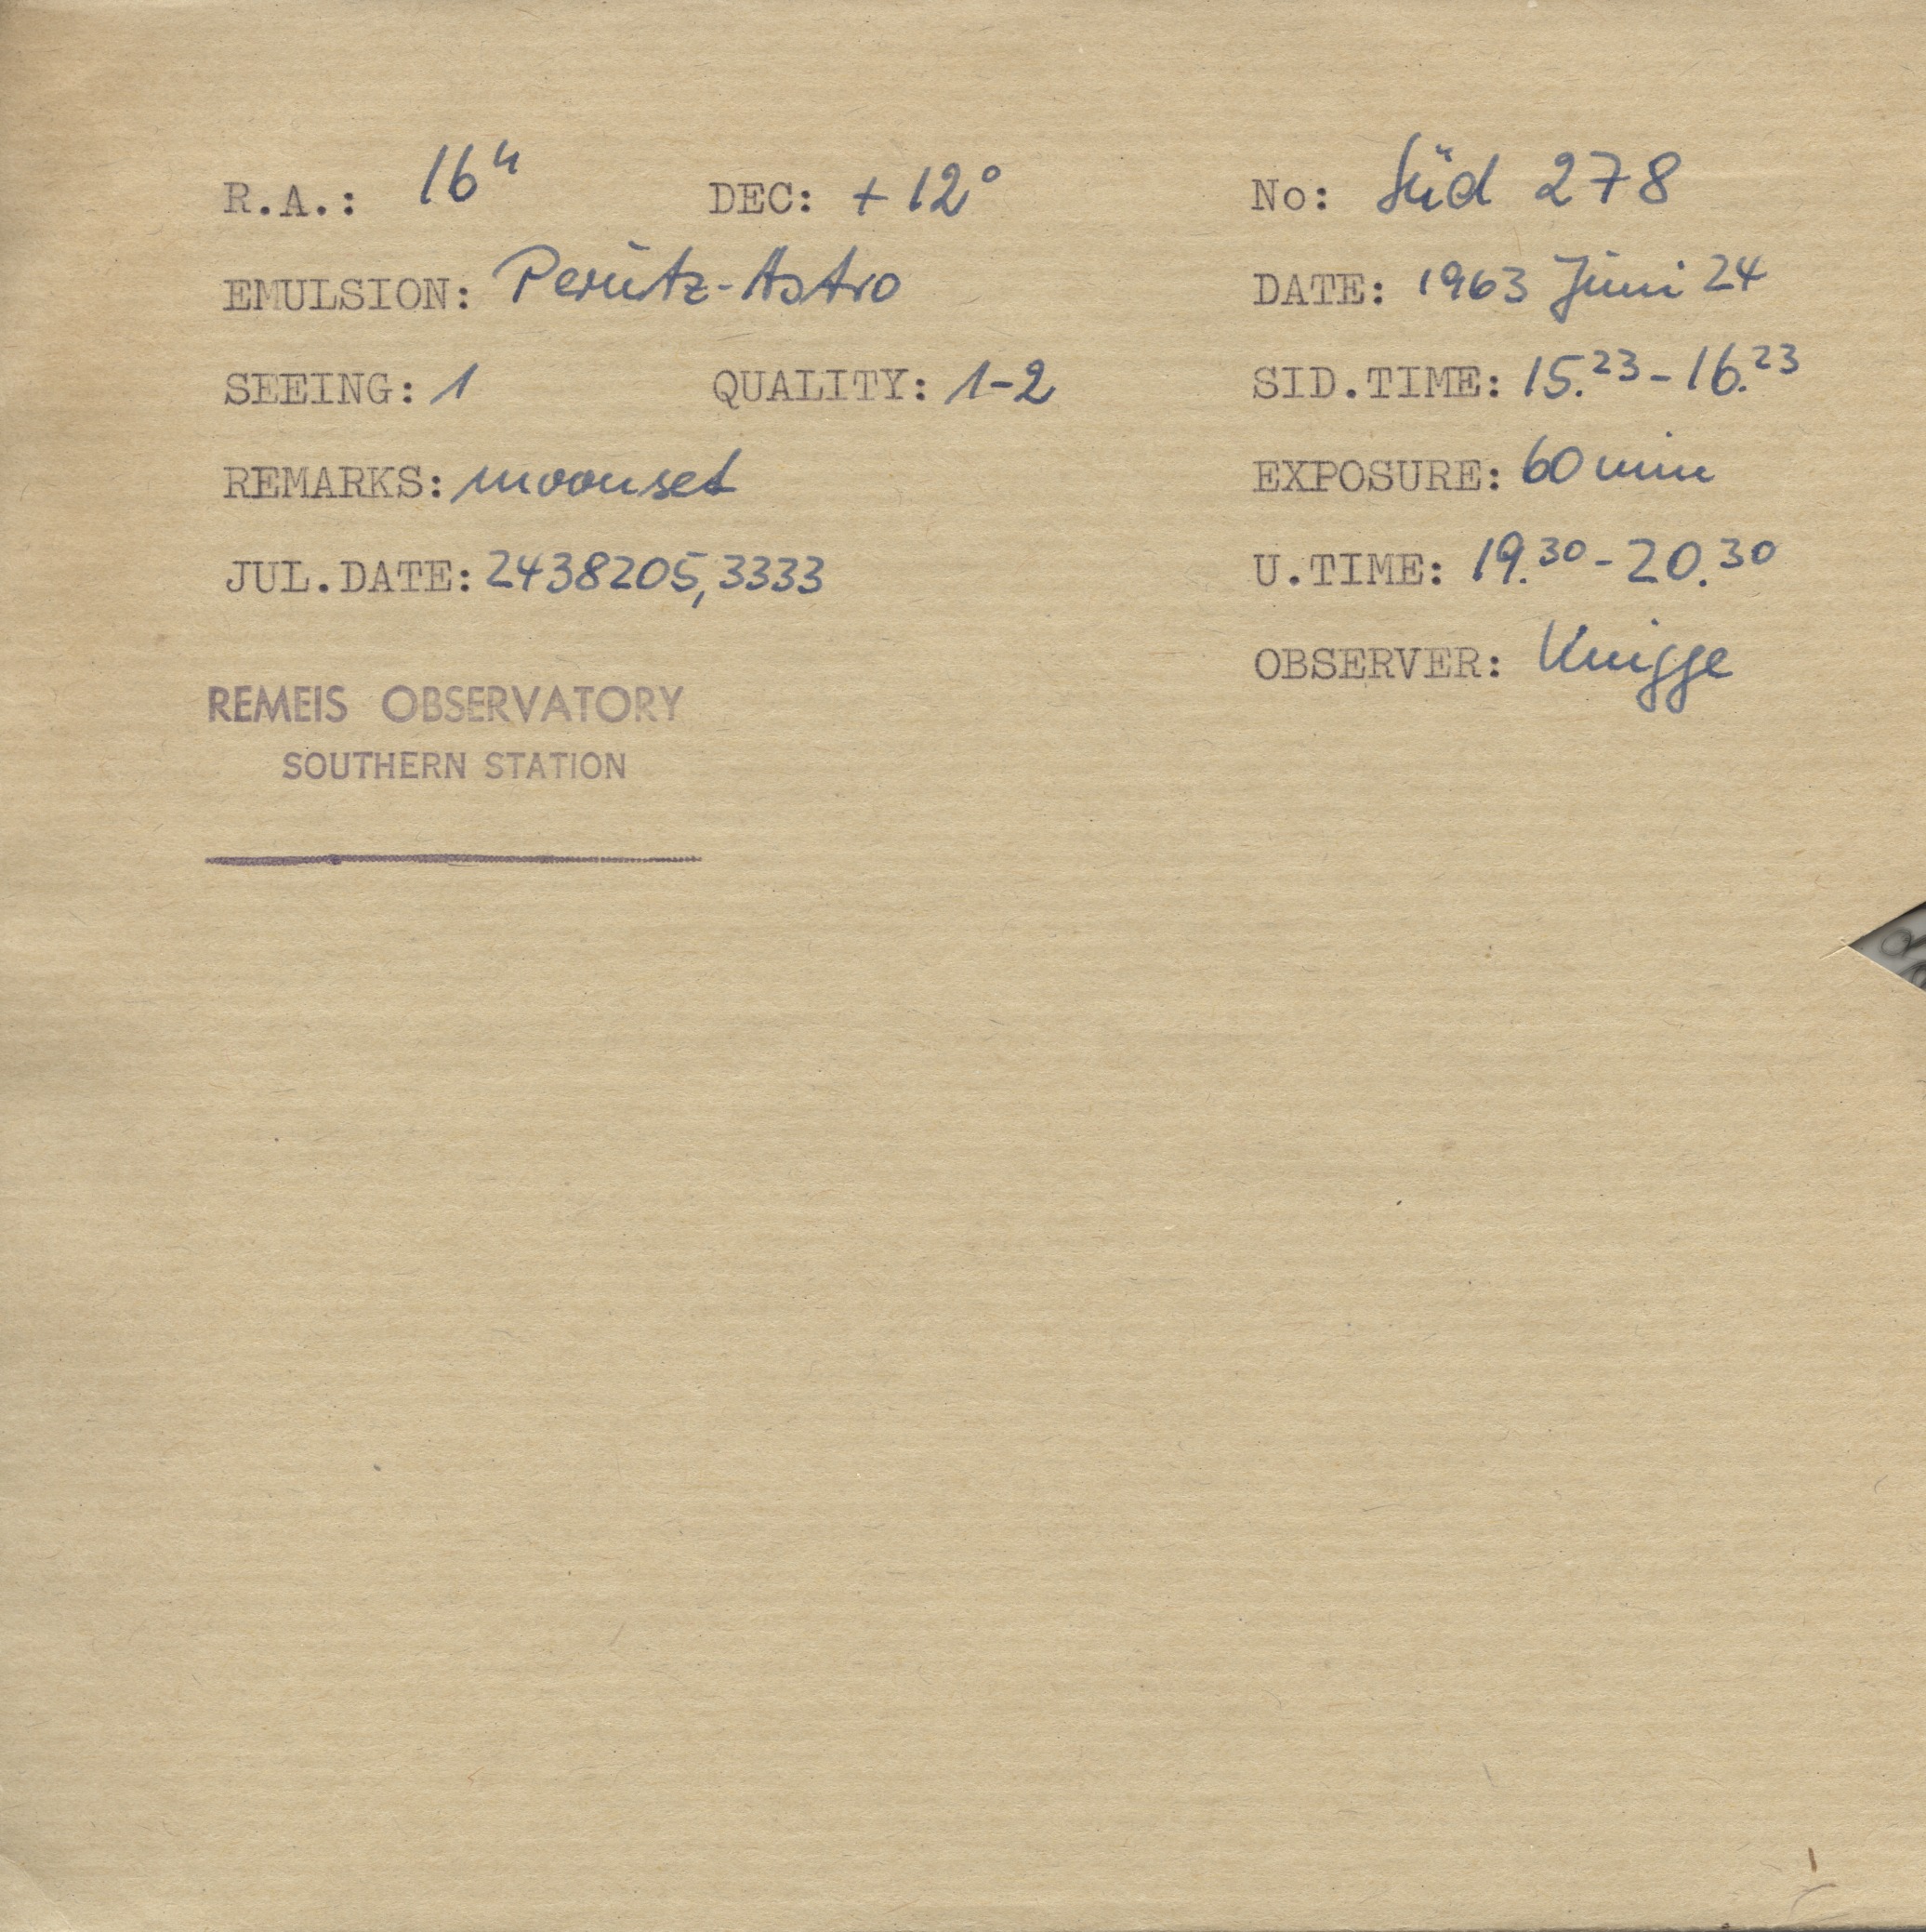 R.A.: 16ʰ DEC: +12° No: Süd 278
EMULSION: Perutz-Astro DATE: 1963 Juni 24
SEEING: 1 QUALITY: 1-2 SID.TIME: 15.²³-16.²³
REMARKS: moonset EXPOSURE: 60 min
JUL.DATE: 2438205,3333 U.TIME: 19.³⁰-20.³⁰
OBSERVER: Knigge
REMEIS OBSERVATORY
SOUTHERN STATION